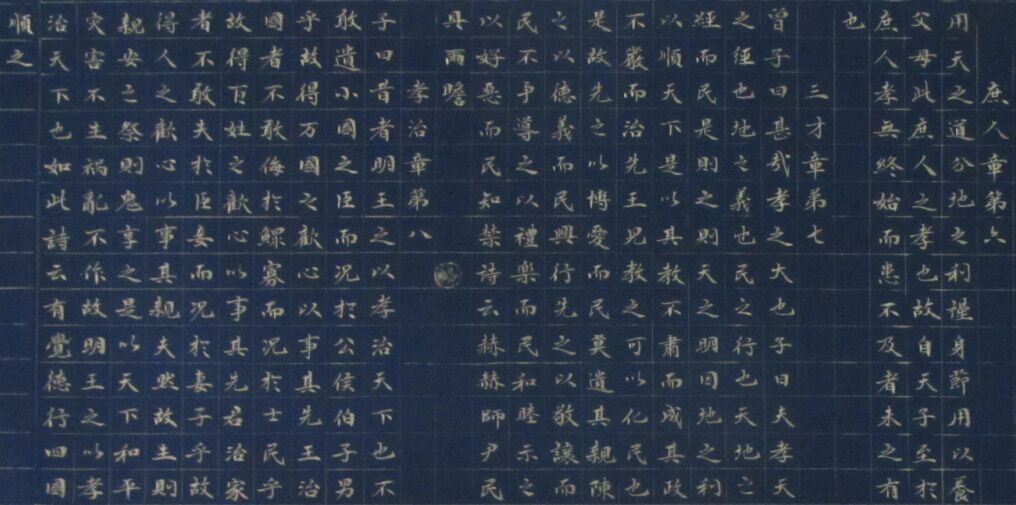 庶人章第六
用天之道分地之利謹身節用以養
父母此庶人之孝也故自天子至於
庶人孝無終始而患不及者未之有
也
三才章弟七
曾子曰甚哉孝之大也子曰夫孝天
之經也地之義也民之行也天地之
經而民是則之則天之明因地之利
以順天下是以其教不肅而成其政
不嚴而治先王見教之可以化民也
是故先之以博愛而民莫遺其親陳
之以德義而民興行先之以敬讓而
民不爭導之以禮樂而民和睦示之
以好惡而民知禁詩云赫赫師尹民
具爾瞻
孝治章第八
子曰昔者明王之以孝治天下也不
敢遺小國之臣而況於公侯伯子男
乎故得万國之歡心以事其先王治
國者不敢侮於鰥寡而況於士民乎
故得百姓之歡心以事其先君治家
者不敢失於臣妾而況於妻子乎故
得人之歡心以事其親夫然故生則
親安之祭則鬼享之是以天下和平
灾害不生禍亂不作故明王之以孝
治天下也如此詩云有覺德行四國
順之